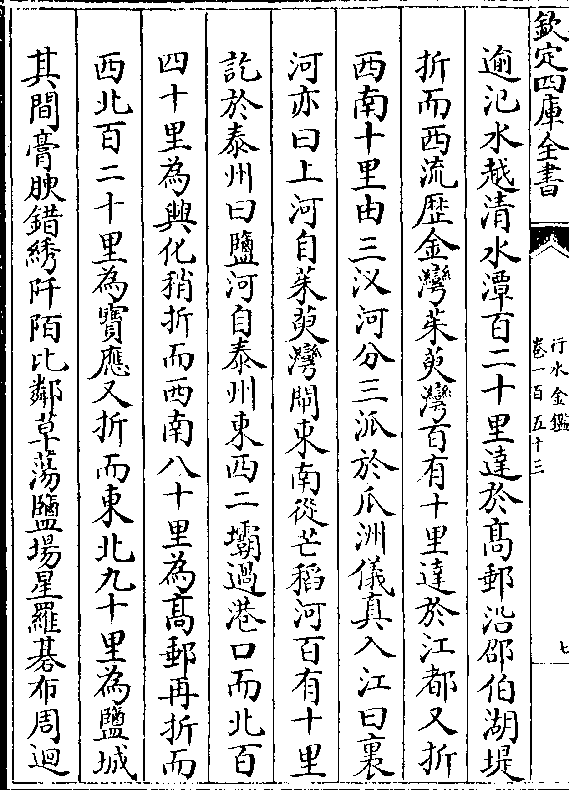 欽定四庫全書
行水金鑑
卷一百五十三
七
逾氾水越清水潭百二十里達於髙郵沿邵伯湖堤
折而西流歴金灣茱萸灣百有十里達於江都又折
西南十里由三汊河分三派於瓜洲儀真入江曰裏
河亦曰上河自茱萸灣閘東南從芒稻河百有十里
訖於泰州曰鹽河自泰州東西二壩過港口而北百
四十里為興化稍折而西南八十里為髙郵再折而
西北百二十里為寳應又折而東北九十里為鹽城
其間膏腴錯綉阡陌比鄰草蕩鹽場星羅碁布周迴